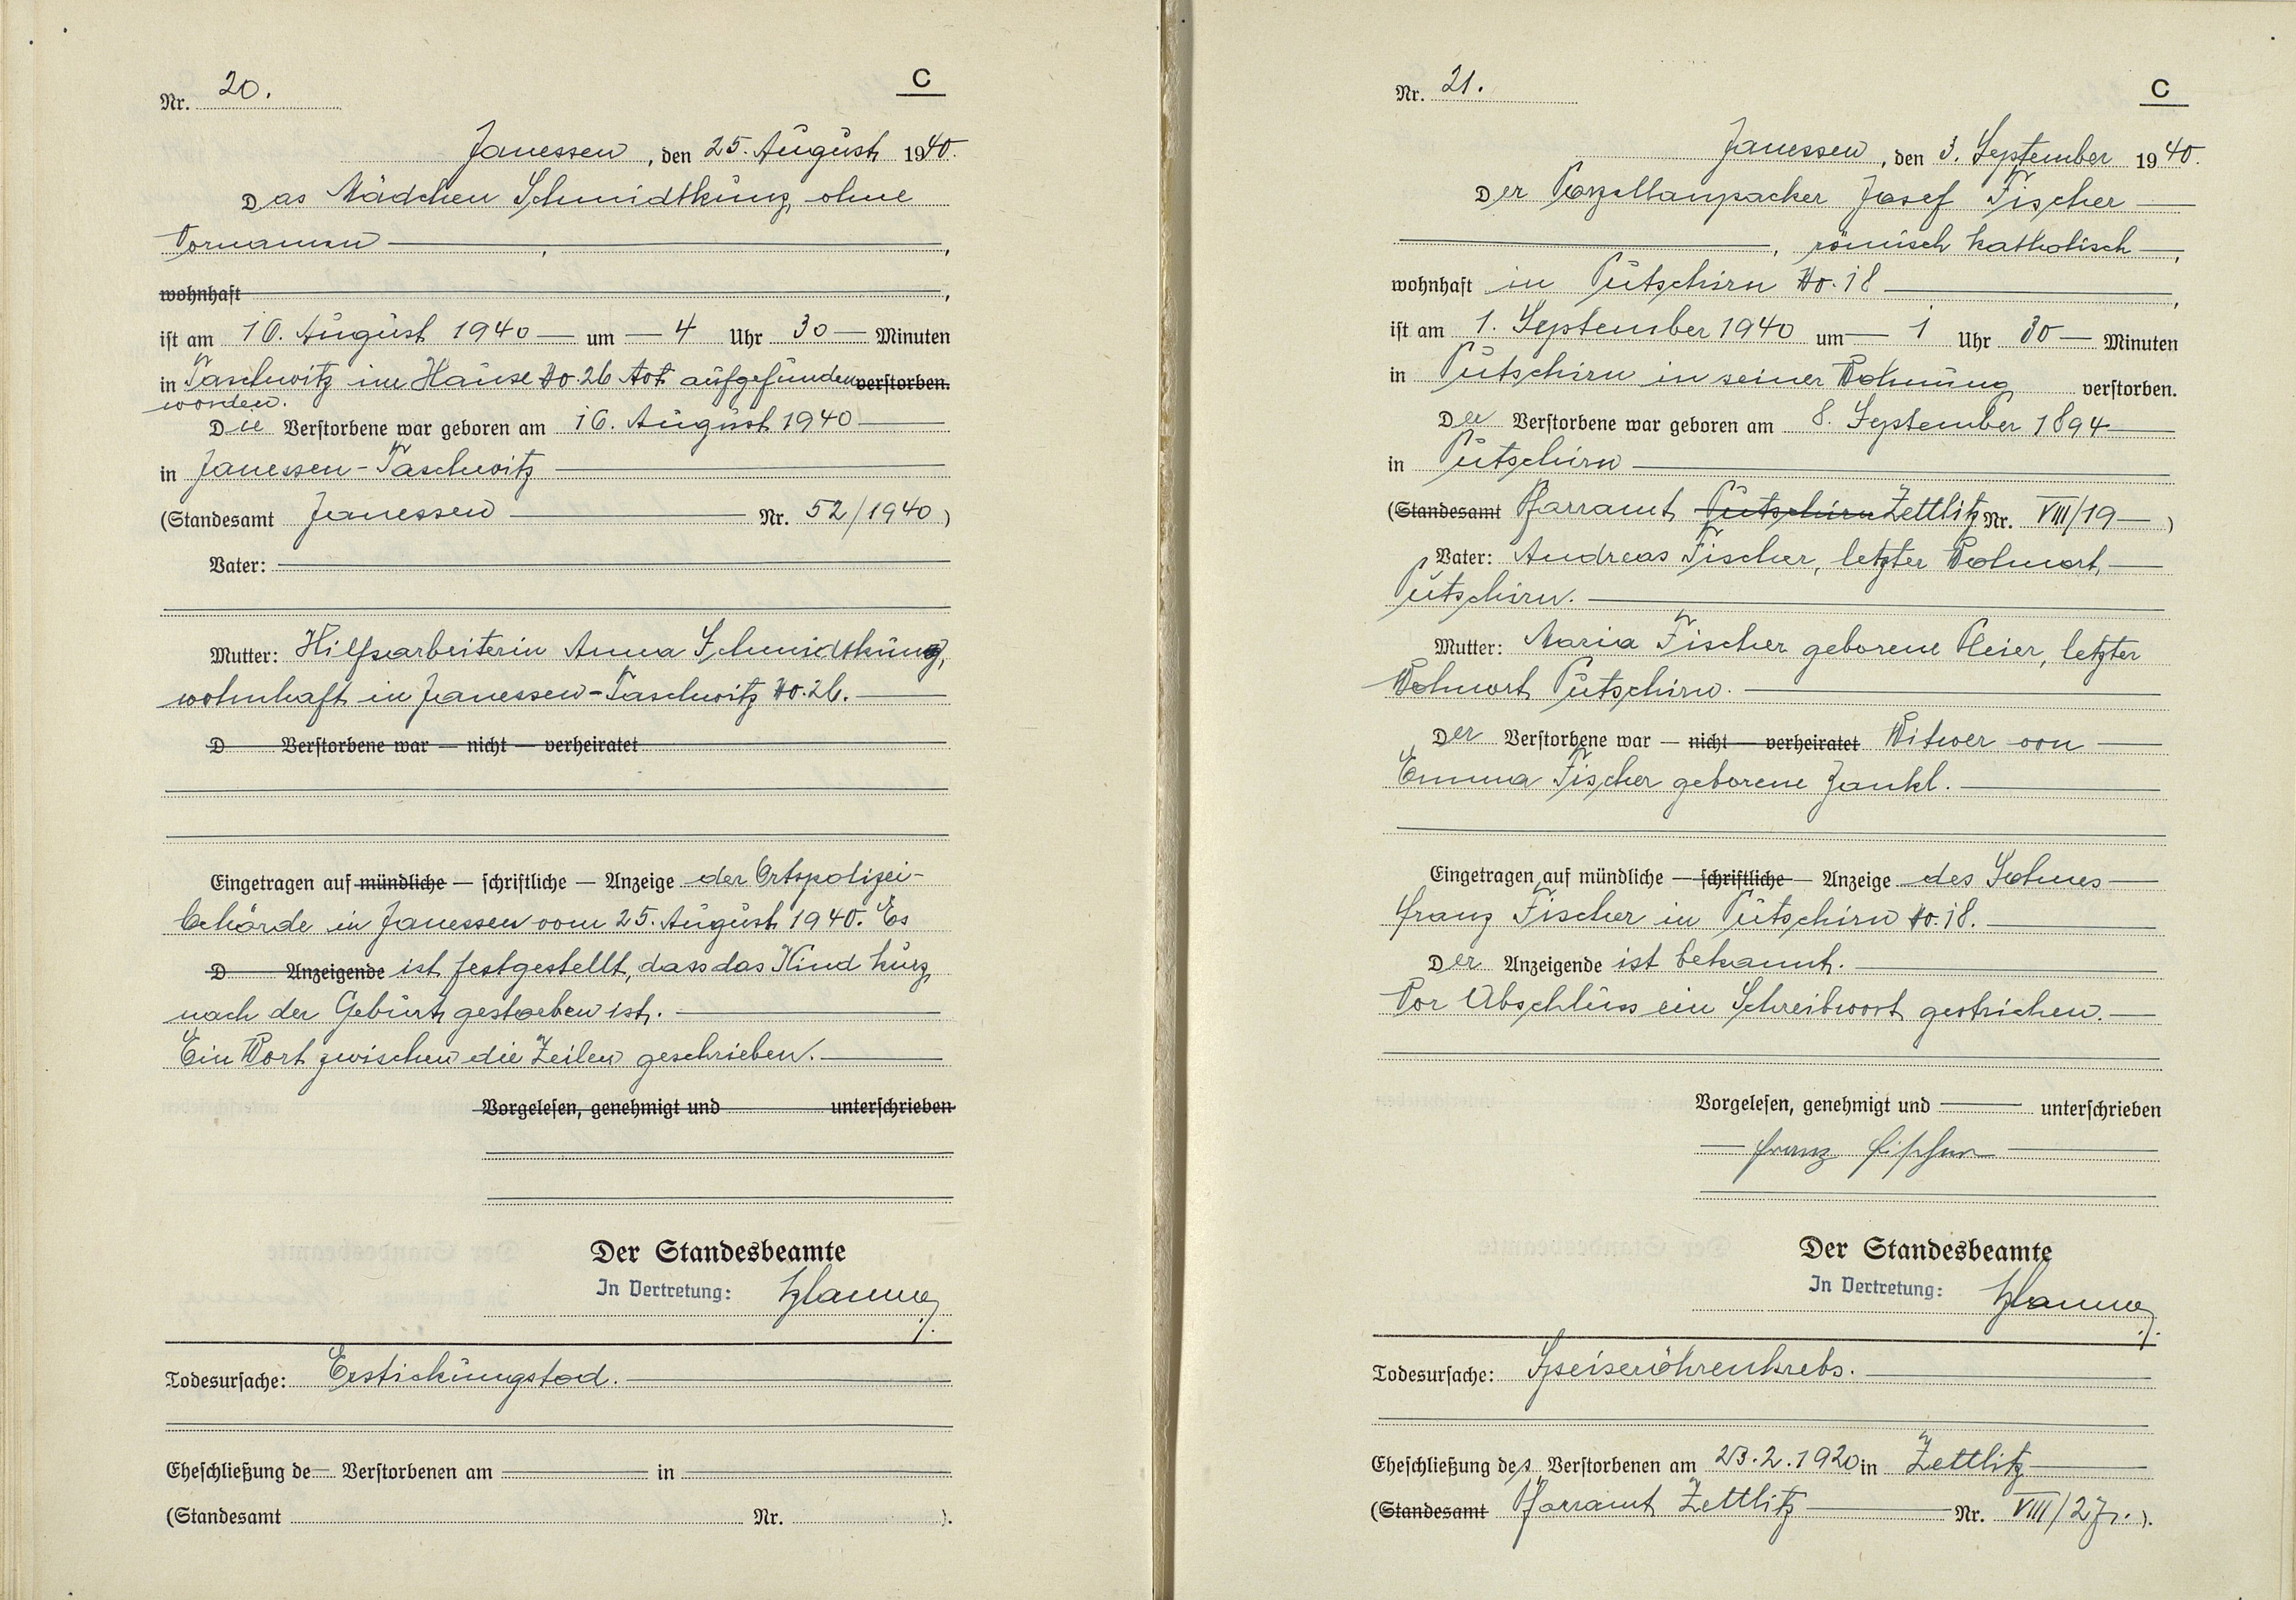 Nr. 20.
C
Janessen, den 25. August 1940.
Das Mädchen Schmidtkunz, ohne
Vornamen,
wohnhaft
ist am 16. August 1940 um 4 Uhr 30 Minuten
in Taschwitz im Hause No. 26 tot aufgefunden verstorben.
worden.
Die Verstorbene war geboren am 16. August 1940
in Janessen-Taschwitz
(Standesamt Janessen Nr. 52/1940)
Vater:
Mutter: Hilfsarbeiterin Anna Schmidtkunz,
wohnhaft in Janessen-Taschwitz No. 26.
D Verstorbene war — nicht — verheiratet
Eingetragen auf mündliche — schriftliche — Anzeige der Ortspolizei-
behörde in Janessen vom 25. August 1940. Es
D Anzeigende ist festgestellt, dass das Kind kurz
nach der Geburt gestorben ist.
Ein Wort zwischen die Zeilen geschrieben.
Vorgelesen, genehmigt und unterschrieben
Der Standesbeamte
In Vertretung:
Todesursache: Erstickungstod.
Eheschließung de Verstorbenen am in
(Standesamt Nr. ).
Nr. 21.
C
Janessen, den 3. September 1940.
Der Porzellanpacker Josef Fischer
, römisch katholisch,
wohnhaft in Putschirn No. 18,
ist am 1. September 1940 um 1 Uhr 30 Minuten
in Putschirn in seiner Wohnung verstorben.
Der Verstorbene war geboren am 8. September 1894
in Putschirn
(Standesamt Pfarramt Putschirn Zettlitz Nr. VIII/19)
Vater: Andreas Fischer, letzter Wohnort,
Putschirn.
Mutter: Maria Fischer geborene Pleier, letzter
Wohnort Putschirn.
Der Verstorbene war — nicht — verheiratet Witwer von
Emma Fischer geborene Jankl.
Eingetragen auf mündliche — schriftliche — Anzeige des Sohnes
Franz Fischer in Putschirn No. 18.
Der Anzeigende ist bekannt.
Vor Abschluss ein Schreibwort gestrichen.
Vorgelesen, genehmigt und unterschrieben
Franz Fischer
Der Standesbeamte
In Vertretung:
Todesursache: Speiseröhrenkrebs.
Eheschließung des Verstorbenen am 23.2.1920 in Zettlitz
(Standesamt Pfarramt Zettlitz Nr. VIII/27).